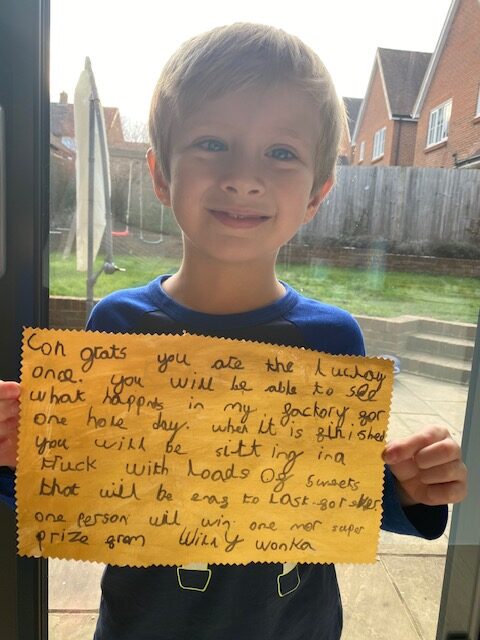 Con grats you are the luckay
one. you will be able to see
what happns in my factory for
one hole day. when it is finished
you will be sitting in a
truck with loads Of sweets
that will be enag to last for
one person will win one mor super
prize from Willy wonka